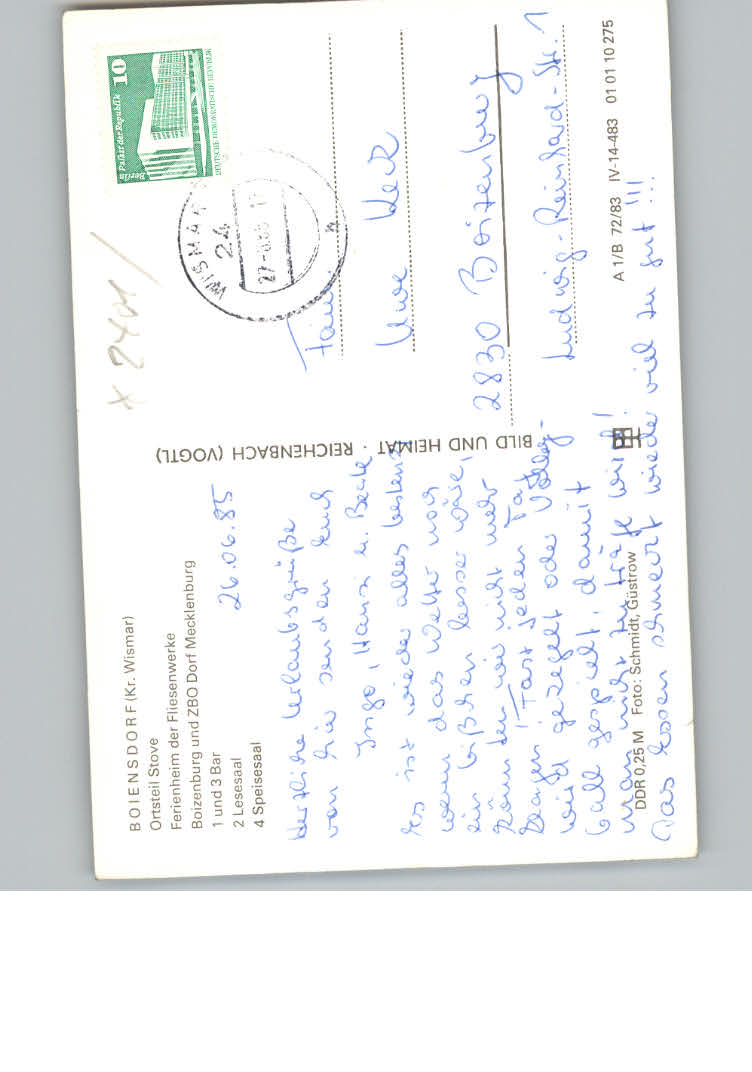 BOIENSDORF (Kr. Wismar)
Ortsteil Stove
Ferienheim der Fliesenwerke
Boizenburg und ZBO Dorf Mecklenburg
1 und 3 Bar
2 Lesesaal
4 Speisesaal
26.06.85
Herzliche Urlaubsgrüße
von hier senden Euch
Ingo, Hansi u. Beate
Es ist wieder alles bestens
wenn das Wetter noch
ein bißchen besser wäre,
könnten wir nicht mehr
klagen! Fast jeden Tag
wird gekegelt oder Volley-
ball gespielt, damit
man nicht zu träge wird!
Das Essen schmeckt wieder viel zu gut!!!
DDR 0,25 M Foto: Schmidt, Güstrow
BILD UND HEIMAT · REICHENBACH (VOGTL)
* 2401
10
Palast der Republik
Berlin
DEUTSCHE DEMOKRATISCHE REPUBLIK
WISMAR
24
Fam.
Uwe
2830 Boizenburg
Ludwig-Reinhard-Str. 1
A 1/B 72/83 IV-14-483 01 01 10 275